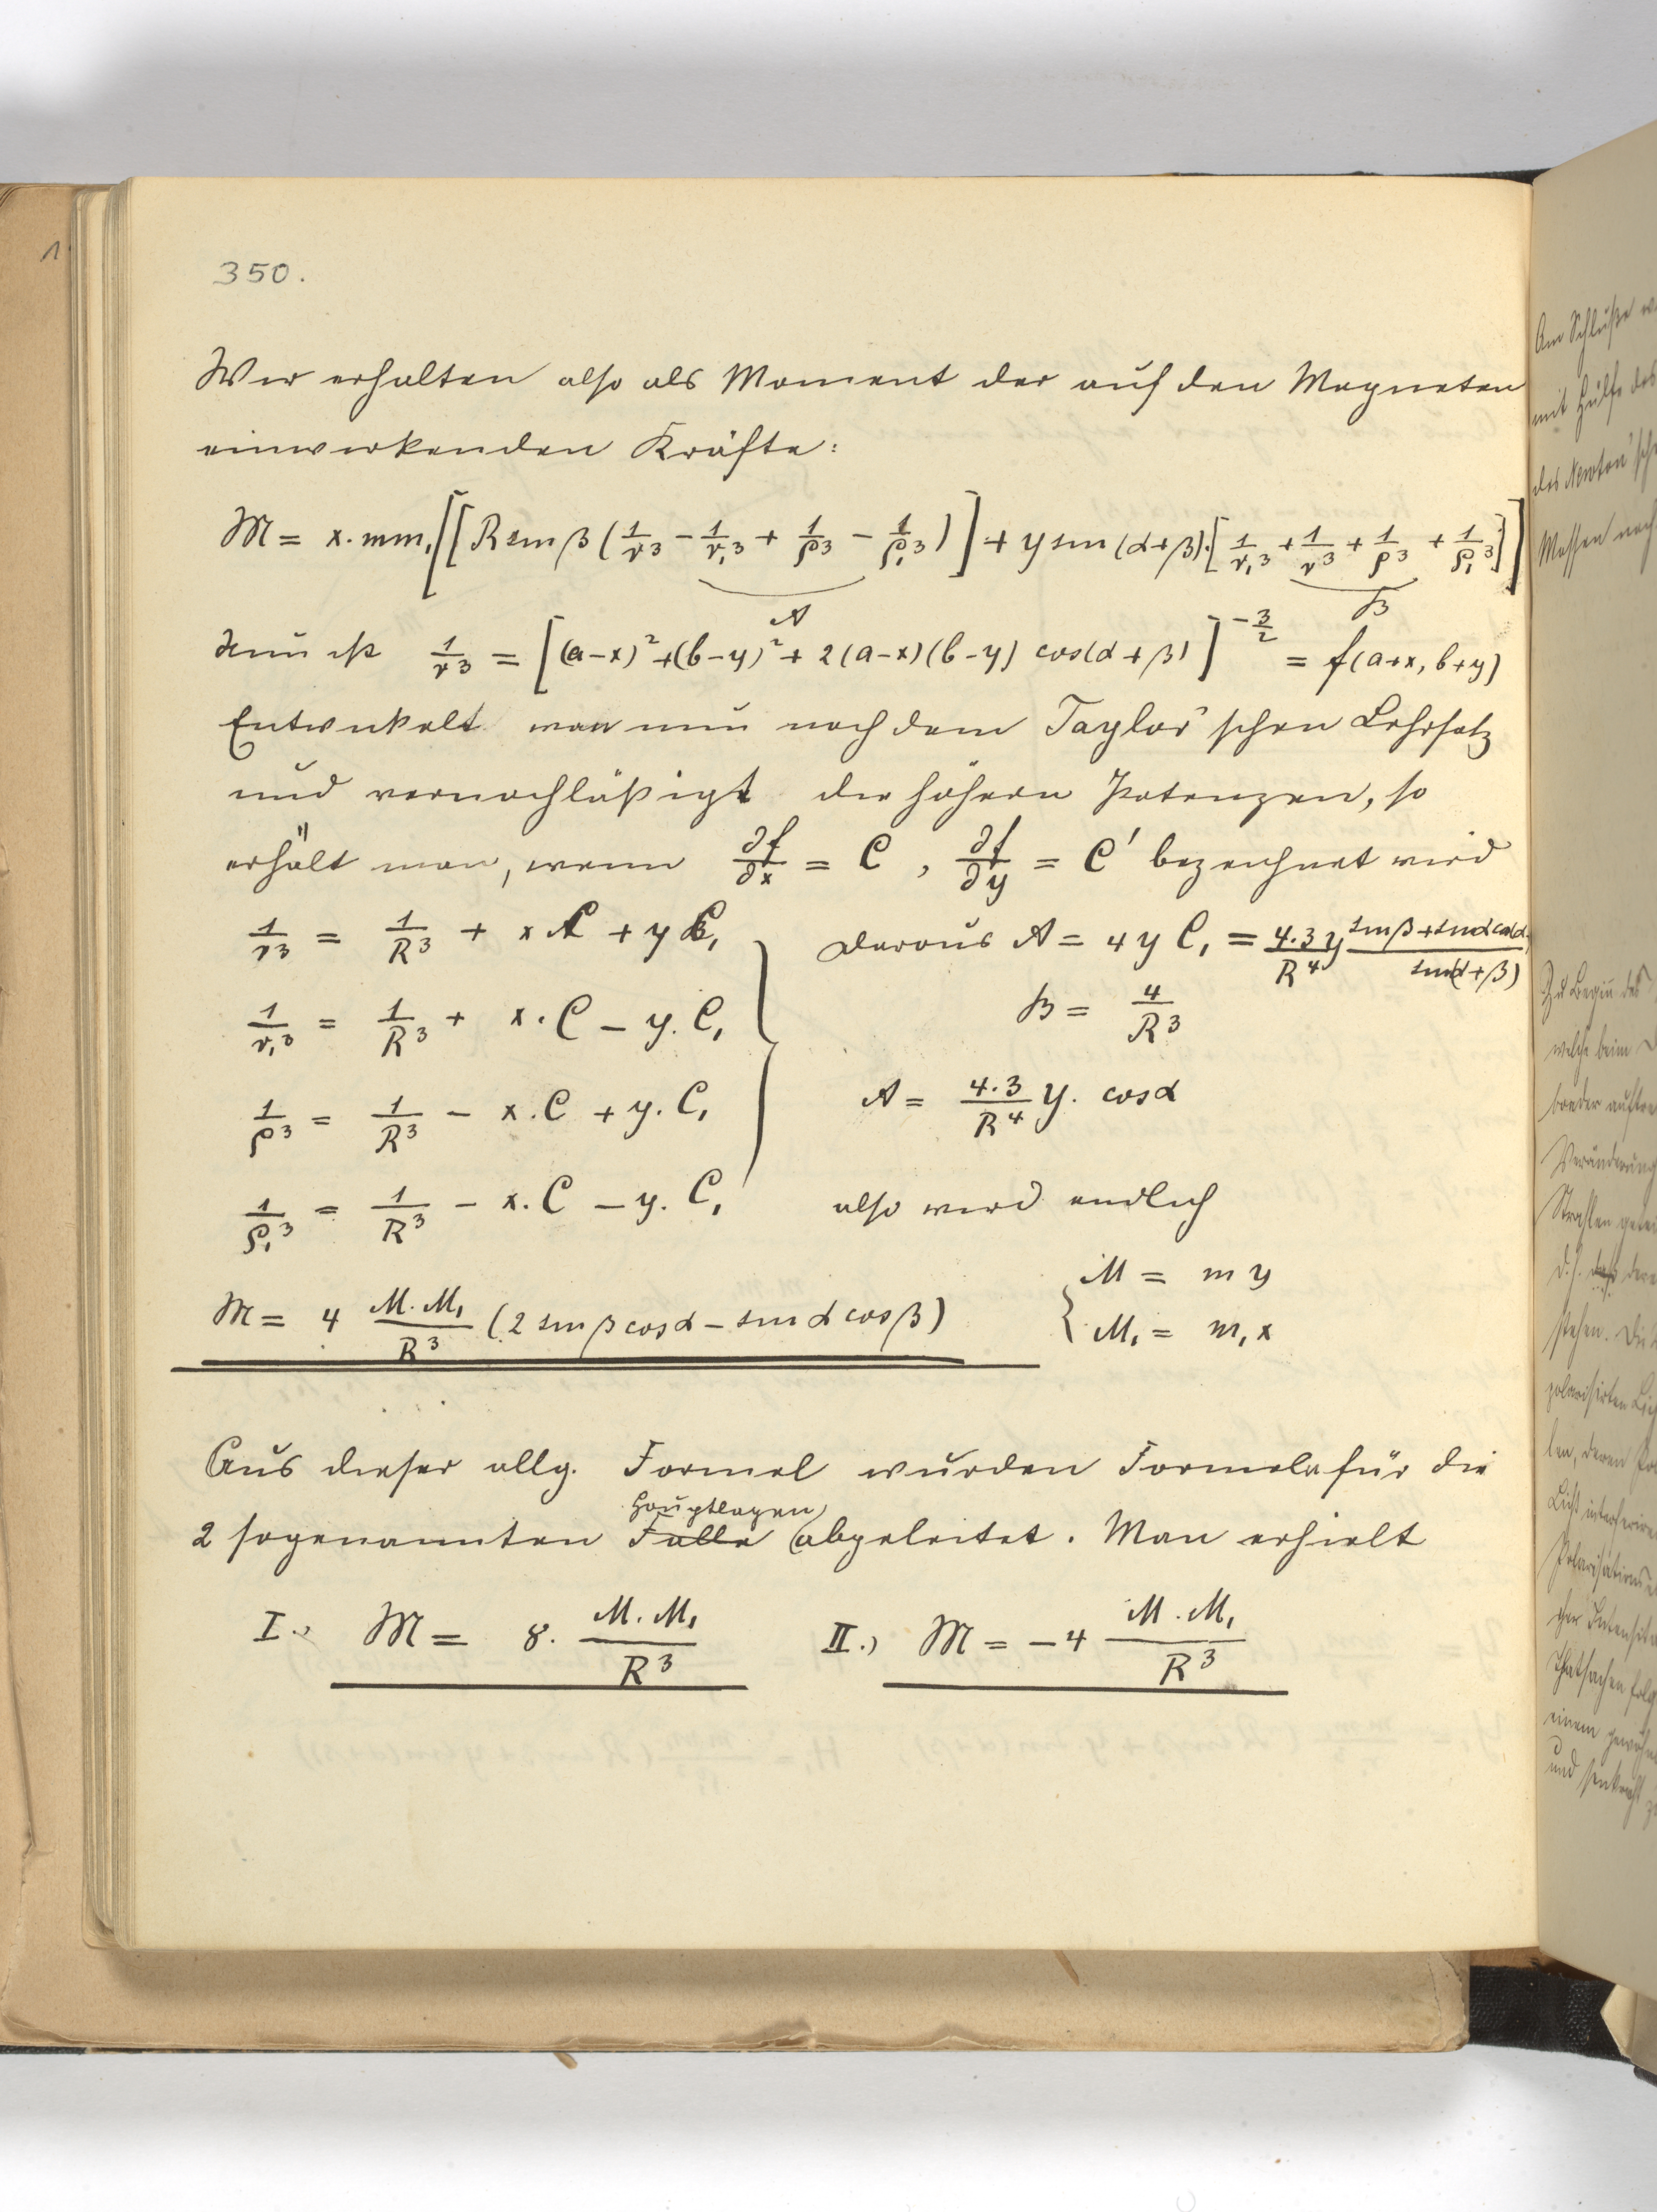 350.
Wir erhalten also als Moment der auf den Magneten
einwirkenden Kräfte:
M = x. mm₁[[R sin β (1/r³ − 1/r₁³ + 1/ρ³ − 1/ρ₁³)] + y sin (α+β).[1/r₁³ + 1/r³ + 1/ρ³ + 1/ρ₁³]]
A B
Nun ist 1/r³ = [(a−x)² + (b−y)² + 2(a−x)(b−y) cos(α+β)]^(−3/2) = f(a+x, b+y)
Entwickelt man nun nach dem Taylor'schen Lehrsatz
und vernachläßigt die höhern Potenzen, so
erhält man, wenn ∂f/∂x = C , ∂f/∂y = C' bezeichnet wird
1/r³ = 1/R³ + x C + y C₁ daraus A = 4 y C₁ = 4.3/R⁴ y (sin β + sin α cos α)/sin(α+β)
1/r₁³ = 1/R³ + x. C − y. C₁ B = 4/R³
1/ρ³ = 1/R³ − x. C + y. C₁ A = 4.3/R⁴ y. cos α
1/ρ₁³ = 1/R³ − x. C − y. C₁ also wird endlich
M = 4 M. M₁/R³ (2 sin β cos α − sin α cos β) { M = m y
M₁ = m₁ x
Aus dieser allg. Formel wurden Formeln für die
Hauptlagen
2 sogenannten Fälle abgeleitet. Man erhielt
I.) M = 8. M. M₁/R³ II.) M = −4 M. M₁/R³